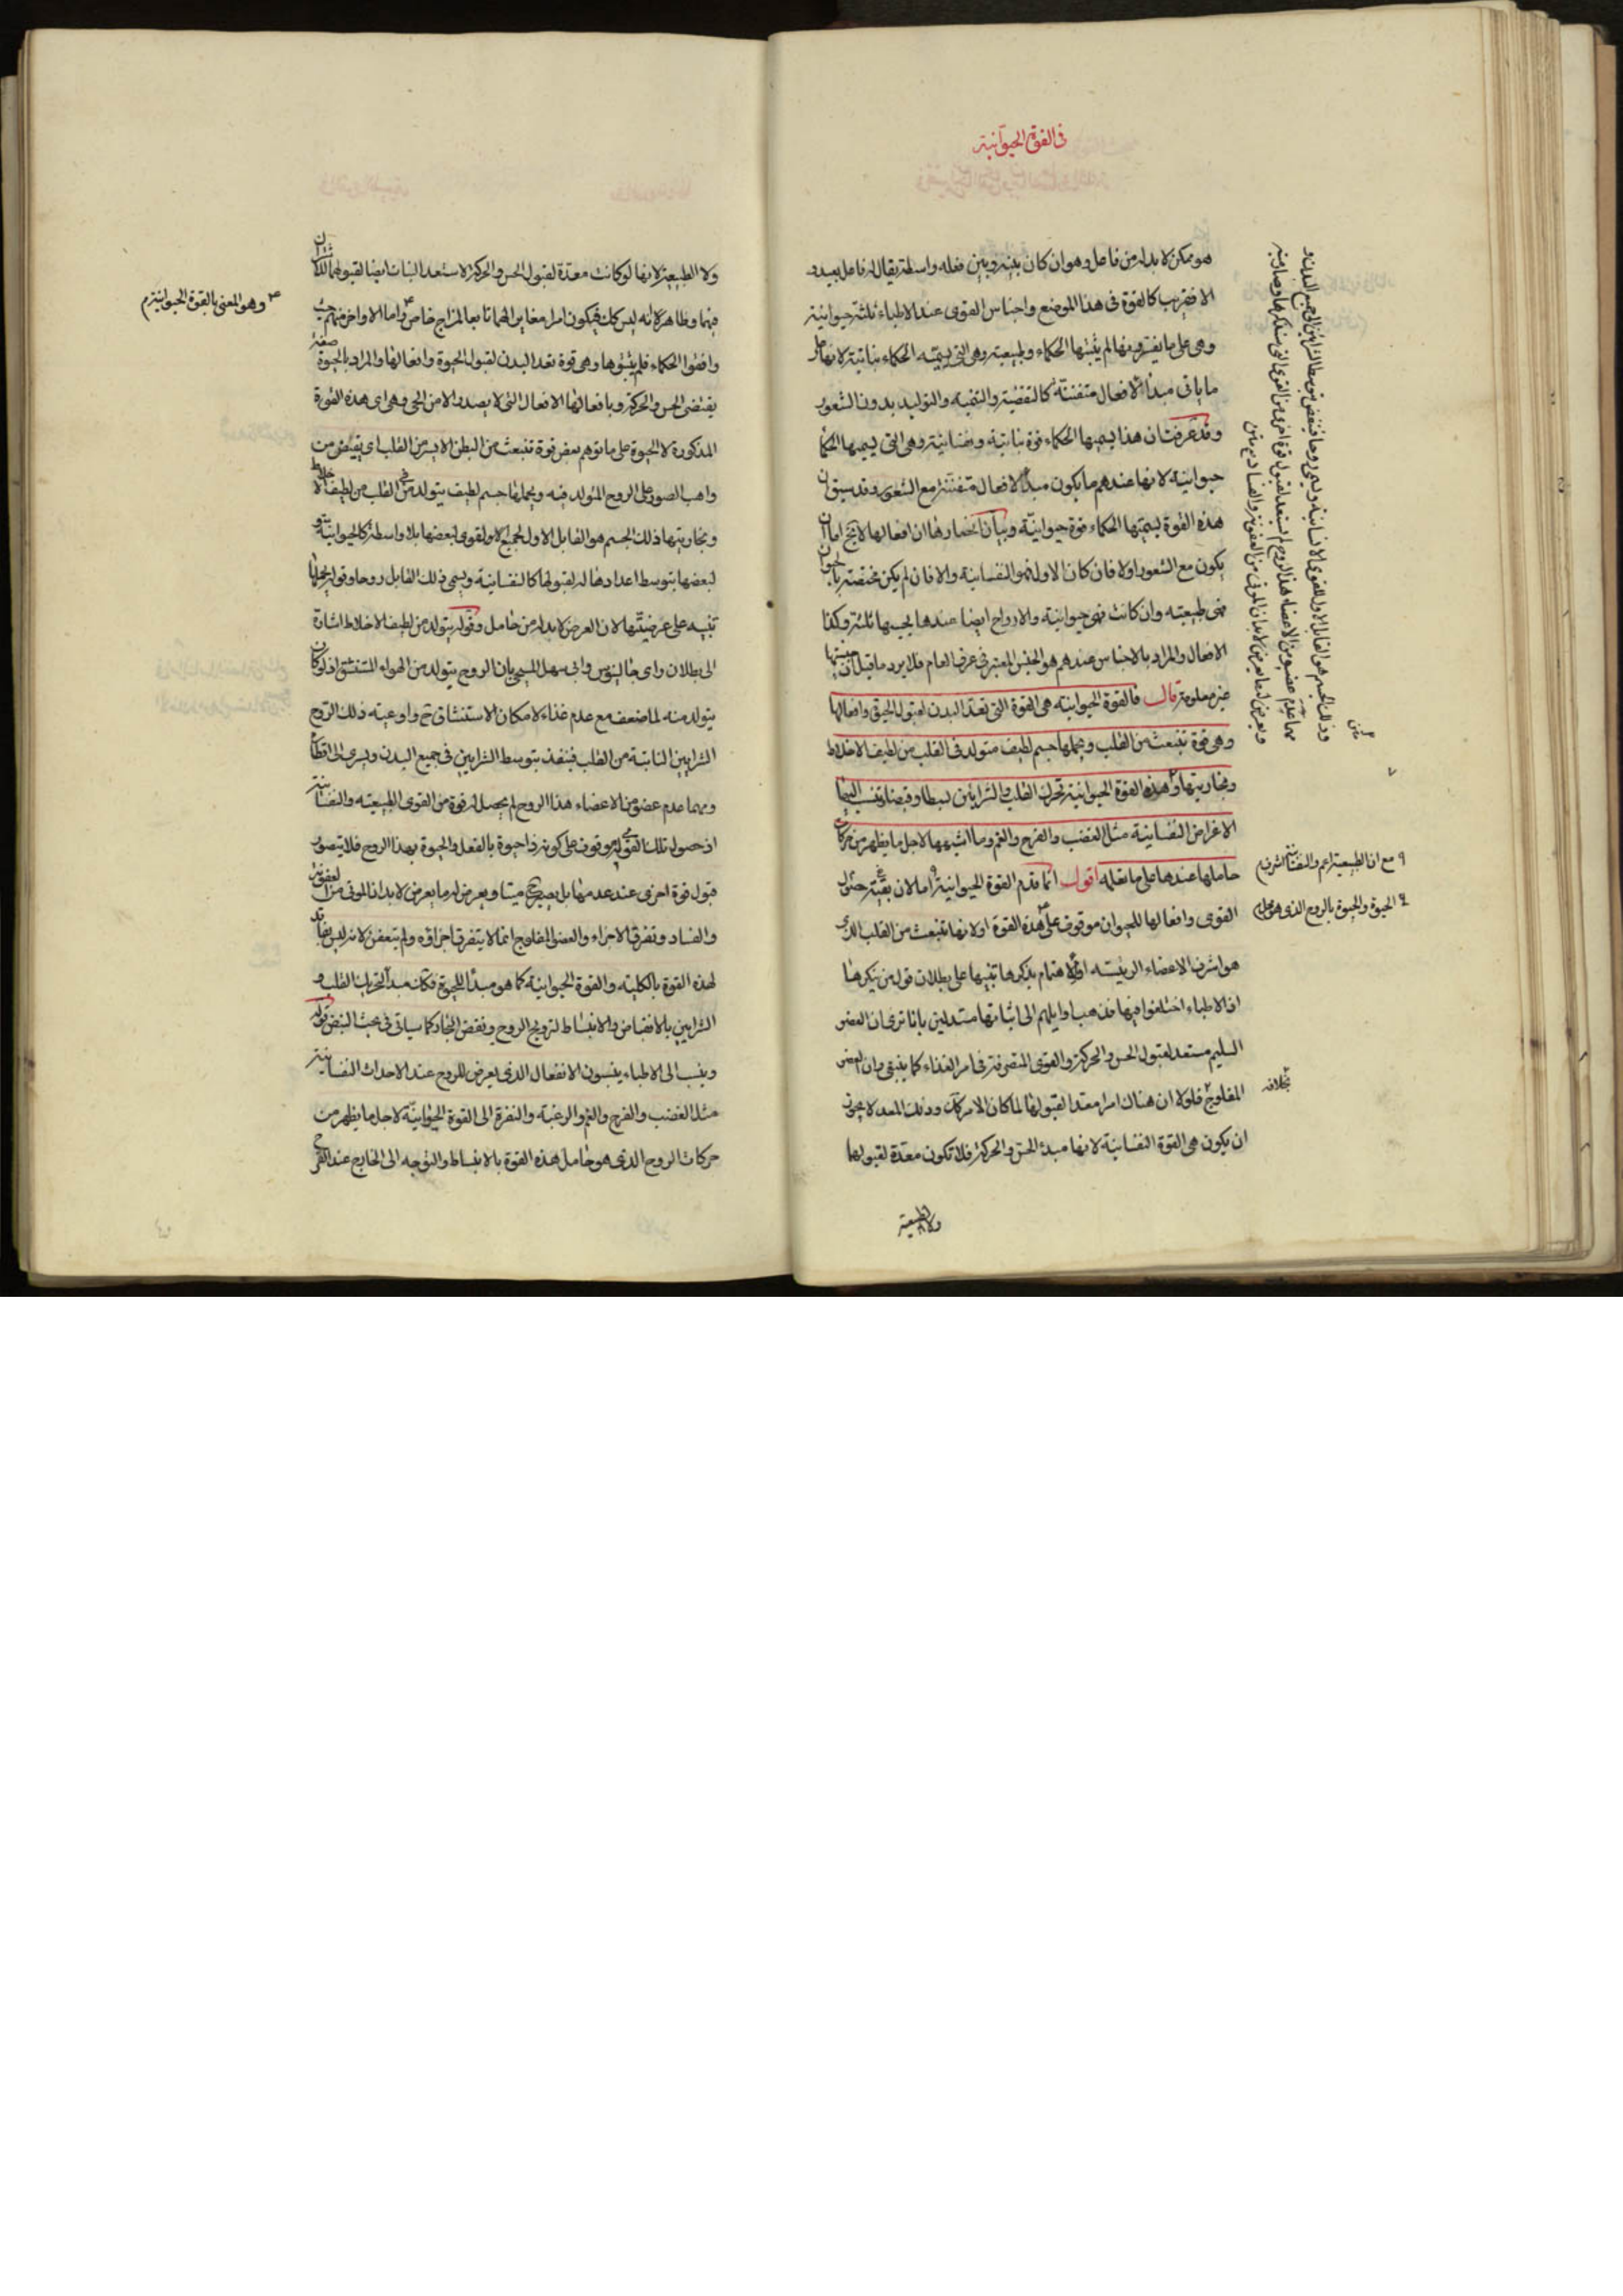 فى القوة الحيوانية
هو ممكن لا بد له من فاعل وهو ان كان بينه وبين فعله واسطة يقال له فاعل بعيد و
الا فقريب كالقوة فى هذا الموضع واجناس القوى عند الاطباء ثلثة حيوانية
وهى على ما يفسرونها لم يثبتها الحكماء وطبيعية وهى التى يسميه الحكماء نباتية لانها على
ما ياتى مبدأ لافعال متفننة كالتغذية والتنمية والتوليد بدون الشعور
وقد عرفت ان هذا يسميها الحكماء قوة نباتية ونفسانية وهى التى يسميها الحكما
حيوانية لانها عندهم ما يكون مبدأ لافعال متفننة مع الشعور وقد سبق ان
هذه القوة يسميها الحكماء قوة حيوانية وبيان انحصارها ان افعالها لا يخ اما ان
يكون مع الشعور اولا فان كان الاول فهو النفسانية والا فان لم يكن مختصة بالحيوان
فهى طبيعية وان كانت فهى حيوانية والارواح ايضا عندها بحسبها ثلثة وكذا
الافعال والمراد بالاجناس عندهم هو الجنس المعتبر فى عرف العام فلا يرد ما قيل ان جنسيتها
غير معلومة قال فالقوة الحيوانية هى القوة التى تعد البدن لقبول الحيوة وافعالها
وهى قوة تنبعث من القلب ويحملها جسم لطيف متولد فى القلب من لطيف الاخلاط
وبخاريتها وهذه القوة الحيوانية تحرك القلب والشرايين بسطا وقبضا وتنسب اليها
الاعراض النفسانية مثل الغضب والفرح والغم وما اشبهها لاجل ما يظهر من حركات
حاملها عندها على ما نعلمه اقول انما قدم القوة الحيوانية اما لان بقية حصول
القوى وافعالها للحيوان موقوف على هذه القوة اولانها تنبعث من القلب الذى
هو اشرف الاعضاء الرئيسه او للاهتمام بذكرها تنبيها على بطلان قول من ينكرها
اذ الاطباء اختلفوا فيها فذهب اوايلهم الى اثباتها مستدلين بانا نرى ان العضو
السليم مستعد لقبول الحس والحركة والقوى المتصرفة فى امر الغذاء كما ينبغى وان العضو
المفلوج فلولا ان هناك امرا معدا لقبولها لما كان الامر كك وذلك المعد لا يجوز
ان يكون هى القوة النفسانية لانها مبدء الحس والحركة فلا تكون معدة لقبولها
ولا الطبيعية
وذلك الجسم هو القابل الاول للقوى الانسانية ويسمى روحا فينفض بتوسط الشرايين الى جميع البدن و
مهما عدم عضو من الاعضاء هذا الروح لم يستعد لقبول قوة اخرى من القوى التى سنذكرها وصار ميتا
ويعرض له ما يعرض لابدان الموتى من العفونة والفساد
متن
مع ان الطبيعية اعم والنفسانية اشرف
الحيوة والحيوة بالروح الذى هو حامل
بخلافه
ولا الطبيعية لانها لو كانت معدة لقبول الحس والحركة لاستعد النبات ايضا لقبولهما لكان
فيها وظاهر انه ليس كك فيكون امرا مغايرا لهما تابعا لمزاج خاص واما الاواخر منهم حيث
وافقوا الحكماء فلم يثبتوها وهى قوة تعد البدن لقبول الحيوة وافعالها والمراد بالحيوة صفة
يقتضى الحس والحركة وبافعالها الافعال التى لا يصدر الا من الحى وهى اى هذه القوة
المذكورة لا الحيوة على ما توهم بعض قوة تنبعث من البطن الايسر من القلب اى يفيض من
واهب الصور على الروح المتولد فيه ويحملها جسم لطيف يتولد فى القلب من لطيف الاخلاط
وبخاريتها ذلك الجسم هو القابل الاول لجميع القوى لبعضها بلا واسطة كالحيوانية و
لبعضها بتوسط اعدادها له لقبولها كالنفسانية ويسمى ذلك القابل روحا وقوله يحملها
تنبيه على عرضيتها لان العرض لا بد له من حامل وقوله يتولد من لطيف الاخلاط اشارة
الى بطلان راى جالينوس وابى سهل المسيحى بان الروح يتولد من الهواء المستنشق اذ لو كان
يتولد منه لما ضعف مع عدم غذاء لامكان الاستنشاق ح واوعيته ذلك الروح
الشرايين النابتة من القلب فينفذ بتوسط الشرايين فى جميع البدن ويسرى الى اقطاره
ومهما عدم عضو من الاعضاء هذا الروح لم يحصل له قوة من القوى الطبيعيه والنفسانية
اذ حصول تلك القوى له موقوف على كونه ذا حيوة بالفعل والحيوة بهذا الروح فلا يتصور
قبول قوة اخرى عند عدمها بل يصير ح ميتا ويعرض له ما يعرض لابدان الموتى من العفونة
والفساد وتفرق الاجزاء والعضو المفلوج انما لا يتفرق اجزاؤه ولم يتعفن لانه ليس بفاقد
لهذه القوة بالكلية والقوة الحيوانية كما هو مبدأ للحيوة فكك مبدأ لتحريك القلب و
الشرايين بالانقباض والانبساط لترويح الروح ونفض البخار كما سياتى فى بحث النبض قوله
وينسب الى الاطباء ينسبون الانفعال الذى يعرض للروح عند الاحداث النفسانية
مثل الغضب والفرح والغم والرغبة والنفرة الى القوة الحيوانية لاجل ما يظهر من
حركات الروح الذى هو حامل هذه القوة بالانبساط والتوجه الى الخارج عند الفرح
وهو المعنى بالقوة الحيوانية